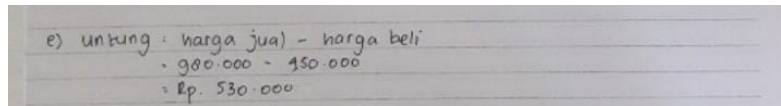 e) untung : harga jual - harga beli
= 980.000 - 450.000
= Rp. 530.000